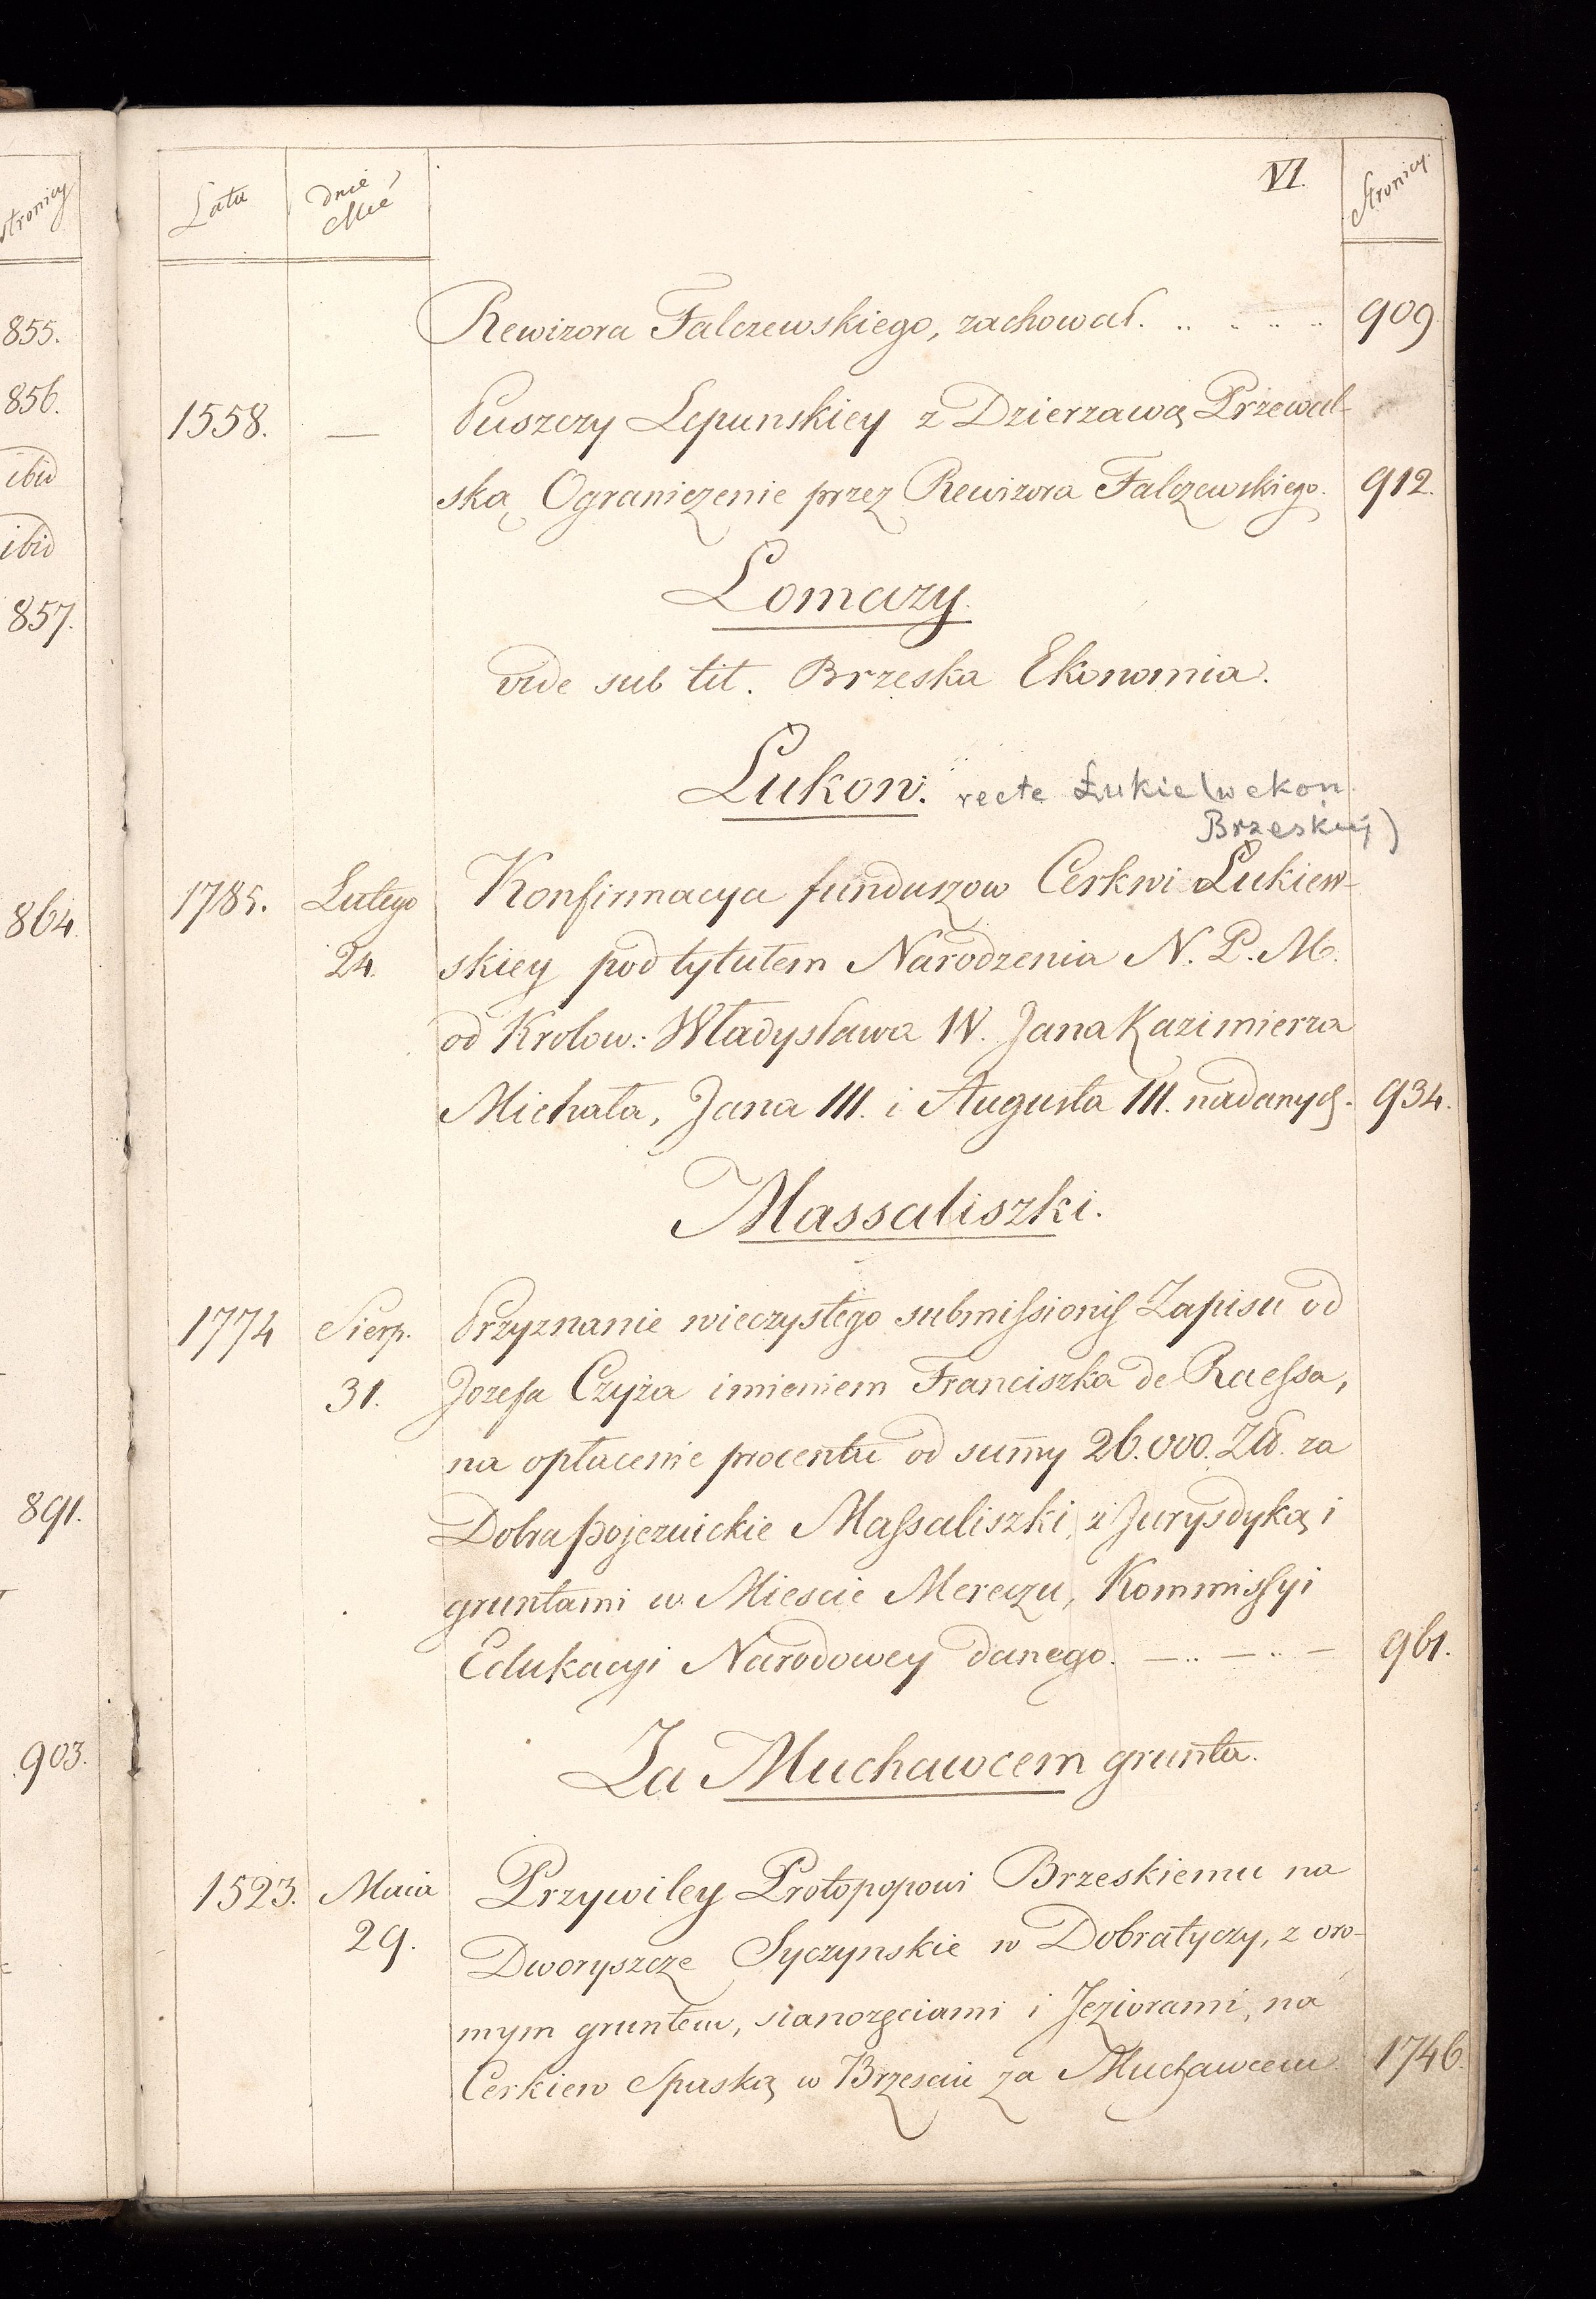 stronicy
855.
856.
ibid
ibid
857.
864.
891.
903.
Lata dnie, Mié VI. Stronicy.
Rewizora Falczewskiego, zachował. .. .. .. .. 909
1558. — Puszczy Lepunskiey z Dzierzawą Przewal-
ską Ograniczenie przez Rewizora Falczewskiego. 912.
Lomazy.
vide sub tit. Brzeska Ekonomia.
Lukow. recte Łukie (w ekon.
Brzeskiej)
1785. Lutego Konfirmacya funduszow Cerkwi Łukiew-
24. skiey pod tytułem Narodzenia N. P. M.
od Krolow: Władysława IV. Jana Kazimierza
Michała, Jana III. i Augusta III. nadanych. 934.
Massaliszki.
1774 Sierp. Przyznanie wieczystego submissionis Zapisu od
31. Jozefa Czyża imieniem Franciszka de Raessa,
na opłacenie procentu od sum̄y 26.000. Zł. za
Dobra pojezuickie Massaliszki z Jurysdyką i
gruntami w Miescie Mereczu, Kommissyi
Edukacyi Narodowey danego. — .. — .. — 961.
Za Muchawcem grunta.
1523. Maia Przywiley Protopopowi Brzeskiemu na
29. Dworyszcze Syczynskie w Dobratyczy, z oro-
mym gruntem, sianozęciami i Jeziorami, na
Cerkiew Spaską w Brzesciu za Muchawcem 1746.